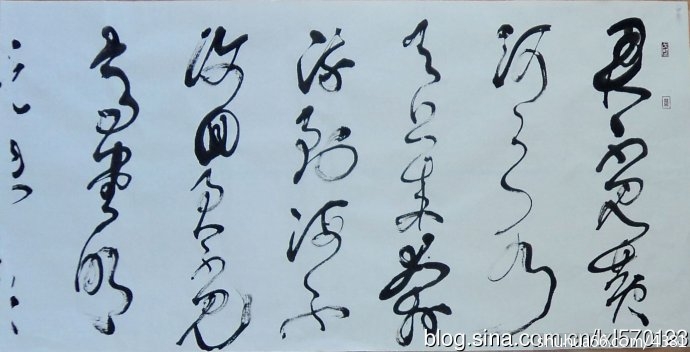 君不見黃
河之水
天上來奔
流到海不
復回君不見
高堂明
blog.sina.com.cn/hl570123